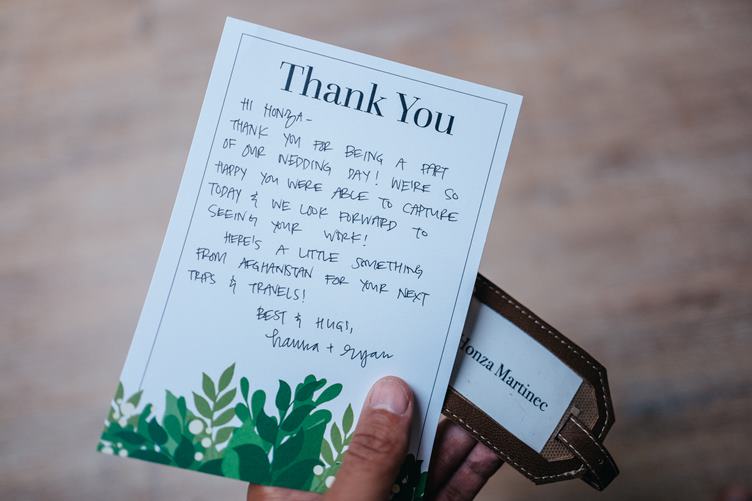 Thank You
HI HONZA-
THANK YOU FOR BEING A PART
OF OUR WEDDING DAY! WE'RE SO
HAPPY YOU WERE ABLE TO CAPTURE
TODAY & WE LOOK FORWARD TO
SEEING YOUR WORK!
HERE'S A LITTLE SOMETHING
FROM AFGHANISTAN FOR YOUR NEXT
TRIPS & TRAVELS!
BEST & HUGS,
hanna + ryan
Honza Martinec